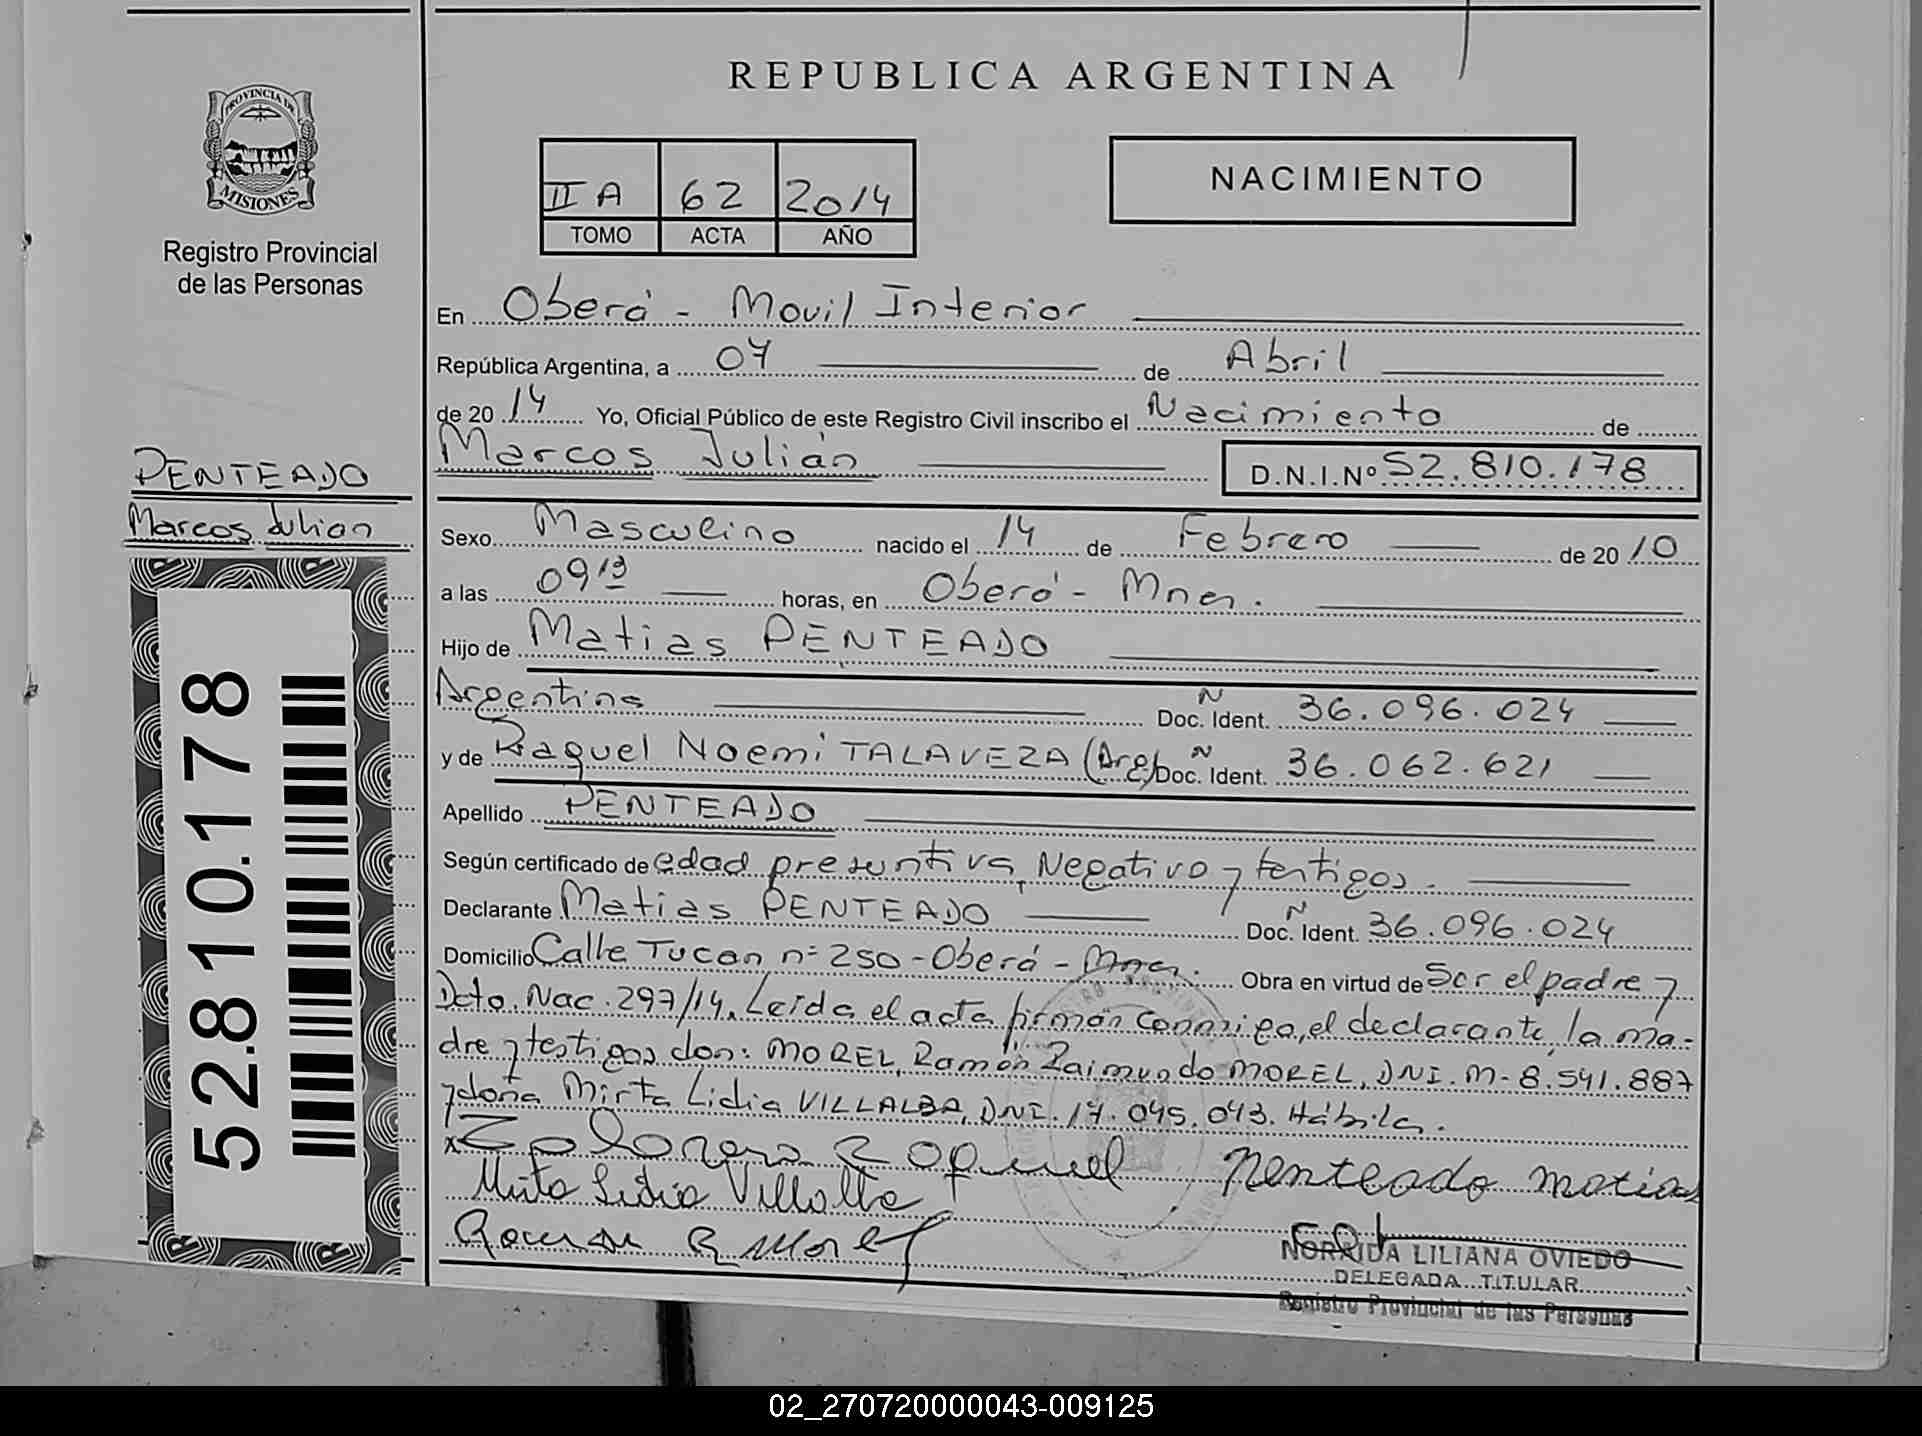 REPUBLICA ARGENTINA
PROVINCIA DE
MISIONES
Registro Provincial
de las Personas
II A 62 2014
TOMO ACTA AÑO
NACIMIENTO
En Oberá - Movil Interior
República Argentina, a 07 de Abril
de 2014 Yo, Oficial Público de este Registro Civil inscribo el Nacimiento de
Marcos Julián D.N.I.Nº 52.810.178
PENTEADO
Marcos Julian
Sexo Masculino nacido el 14 de Febrero de 2010
a las 09 13 horas, en Oberá - Mnes.
Hijo de Matias PENTEADO
Argentina Doc. Ident. N 36.096.024
y de Raquel Noemi TALAVEZA (Arg) Doc. Ident. N 36.062.621
Apellido PENTEADO
Según certificado de edad presuntiva, Negativo y testigos.
Declarante Matias PENTEADO Doc. Ident. N 36.096.024
Domicilio Calle Tucan nº 250 - Oberá - Mnes. Obra en virtud de Ser el padre y
Dcto. Nac. 297/14. Leida el acta firman conmigo, el declarante, la ma-
dre y testigos don: MOREL, Ramón Raimundo MOREL, DNI. M- 8.541.887
y doña Mirta Lidia VILLALBA, DNI. 17.045.043. Hábiles.
x Penteado Matias
Mirta Lidia Villalba
Ramon R Morel
NORAIDA LILIANA OVIEDO
DELEGADA TITULAR
Registro Provincial de las Personas
52.810.178
02_270720000043-009125